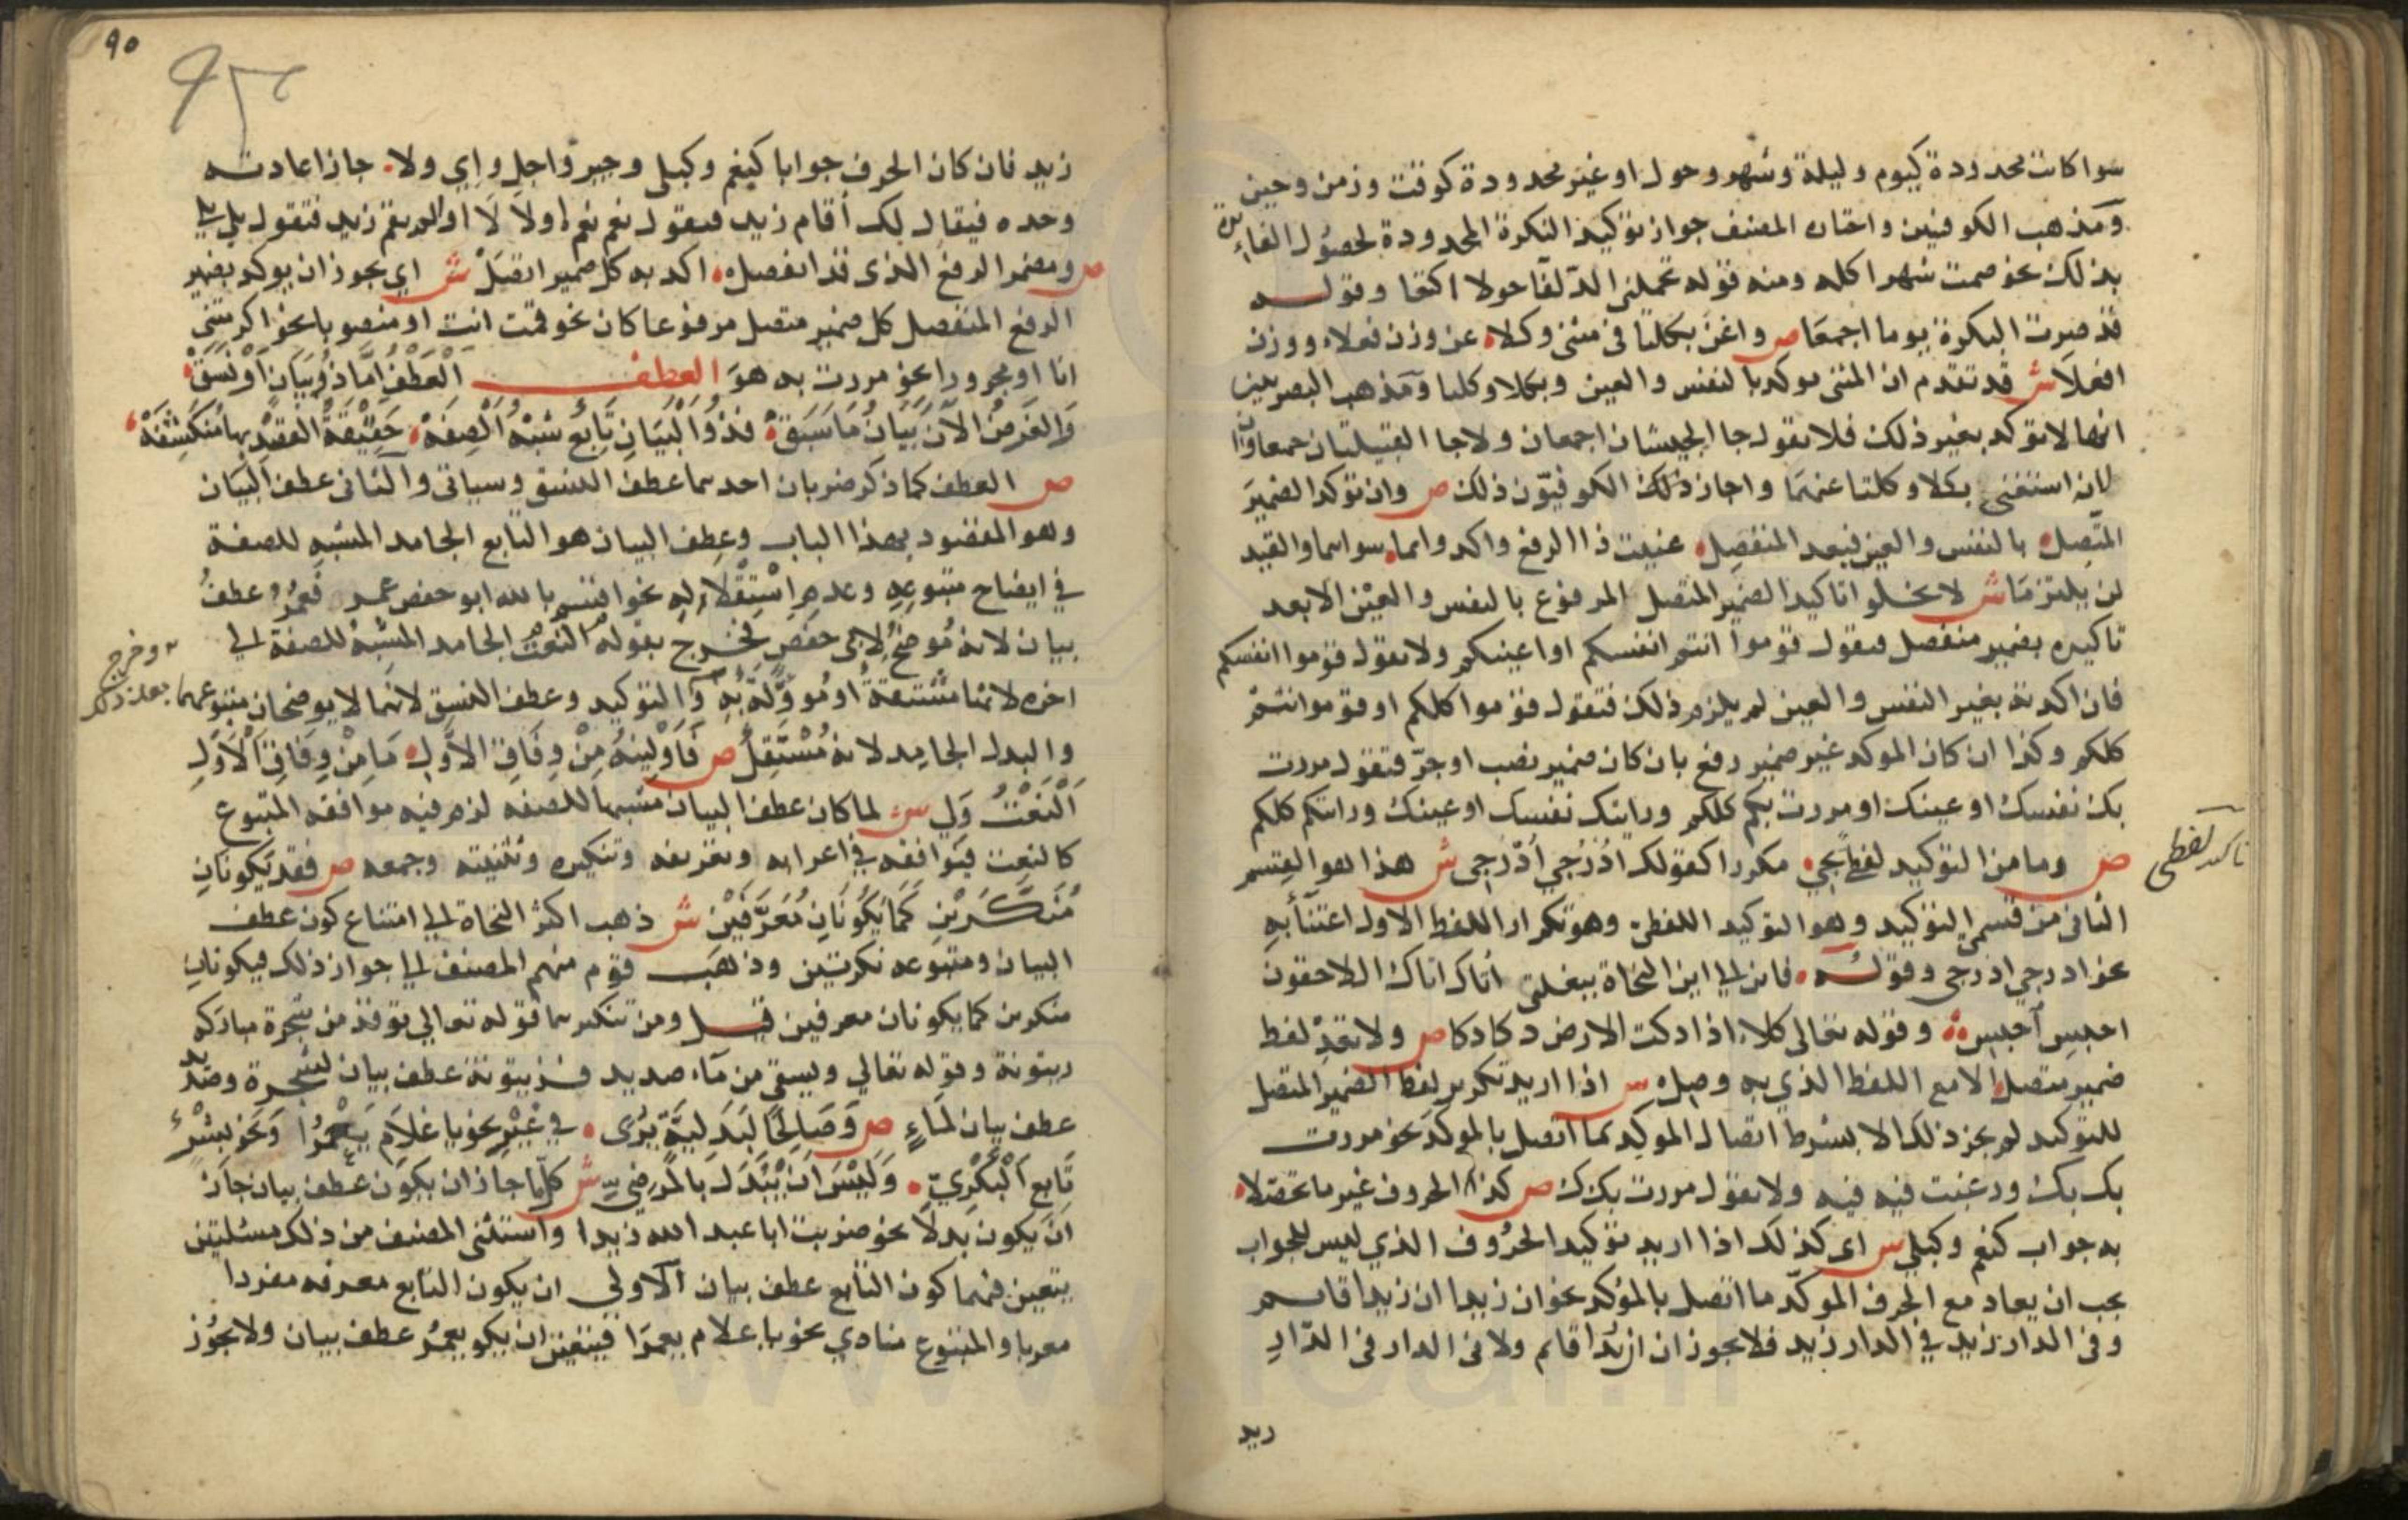 سوا كانت محدودة كيوم وليلة وشهر وحول او غير محدودة كوقت وزمن وحين
ومذهب الكوفيين واختاره المصنف جواز توكيد النكرة المحدودة لحصول الفائدة
بذلك نحو صمت شهرا كله ومنه قوله تحملني الذلفا حولا اكتعا وقوله
قد صرت البكرة يوما اجمعا ص واغن بكلتا في مثنى وكلا عن وزن فعلاء ووزن
افعلا ش قد تقدم ان المثنى يوكد بالنفس والعين وبكلا وكلتا ومذهب البصريين
انهما لا توكد بغير ذلك فلا تقول جا الجيشان اجمعان ولا جا القبيلتان جمعاوان
لانه استغنى بكلا وكلتا عنهما واجاز ذلك الكوفيون ذلك ص وان توكد الضمير
المتصل بالنفس والعين فبعد المنفصل عنيت ذا الرفع واكدوا بما سواهما والقيد
لن يلتزما ش لا يخلوا تاكيد الضمير المتصل المرفوع بالنفس والعين الا بعد
تاكيده بضمير منفصل فتقول قوموا انتم انفسكم او اعينكم ولا تقول قوموا انفسكم
فان اكدته بغير النفس والعين لم يلزم ذلك فتقول قوموا كلكم او قوموا انتم
كلكم وكذا ان كان الموكد غير ضمير رفع بان كان ضمير نصب او جر فتقول مررت
بك نفسك او عينك او مررت بكم كلكم ورايتك نفسك او عينك ورايتكم كلكم
تاكيد لفظي
ص وما من التوكيد لفظي يجي مكررا كقولك ادرجي ادرجي ش هذا هو القسم
الثاني من قسمي التوكيد وهو التوكيد اللفظي وهو تكرار اللفظ الاول اعتنا به
نحو ادرجي ادرجي وقوله فاين الى اين النجاة ببغلتي اتاك اتاك اللاحقون
احبس احبس وقوله تعالى كلا اذا دكت الارض دكا دكا ص ولا تعد لفظ
ضمير متصل الا مع اللفظ الذي به وصل ش اذا اريد تكرير لفظ الضمير المتصل
للتوكيد لم يجز ذلك الا بشرط اتصال الموكد بما اتصل بالموكد نحو مررت
بك بك ورغبت فيه فيه ولا تقول مررت بكك ص كذا الحروف غير ما تحصلا
به جواب كنعم وكبلى ش اى كذلك اذا اريد توكيد الحروف الذي ليس للجواب
يجب ان يعاد مع الحرف الموكد ما اتصل بالموكد نحو ان زيدا ان زيدا قائم
وفي الدار زيد في الدار زيد فلا يجوز ان ان زيدا قائم ولا في الدار في الدار
زيد
٩٥
زيد فان كان الحرف جوابا كنعم وكبلى وجير واجل واي ولا جاز اعادته
وحده فيقال لك أقام زيد فتقول نعم نعم او لا لا او الم يقم زيد فتقول بلى بلى
ص ومضمر الرفع الذى قد انفصل اكد به كل ضمير اتصل ش اي يجوز ان يوكد بضمير
الرفع المنفصل كل ضمير متصل مرفوعا كان نحو قمت انت او منصوبا نحو اكرمتني
انا او مجرورا نحو مررت به هو العطف العطف اما ذو بيان او نسق
والغرض الآن بيان ما سبق فذو البيان تابع شبه الصفة حقيقة القصد بها منكشفة
ص العطف كما ذكر ضربان احدهما عطف النسق وسياتى والثانى عطف البيان
وهو المقصود بهذا الباب وعطف البيان هو التابع الجامد المشبه للصفة
في ايضاح متبوعه وعدم استقلاله نحو اقسم بالله ابو حفص عمر فعمر عطف
بيان لانه موضح لابى حفص فخرج بقوله النعت الجامد المشبه للصفة الى
اخره لانها مشتقة او موولة به والتوكيد وعطف النسق لانهما لا يوضحان متبوعهما
وخرج بعد ذلك
والبدل الجامد لانه مستقل ص فاولينه من وفاق الاول ما من وفاق الاول
النعت ولي ش لما كان عطف البيان مشبها للصفه لزم فيه موافقه المتبوع
كالنعت فيوافقه في اعرابه وتعريفه وتنكيره وتثنيته وجمعه ص فقد يكونان
منكرين كما يكونان معرفين ش ذهب اكثر النحاة الى امتناع كون عطف
البيان ومتبوعه نكرتين وذهب قوم منهم المصنف الى جواز ذلك فيكونان
منكرين كما يكونان معرفين قيل ومن تنكيرهما قوله تعالي توقد من شجرة مباركه
زيتونة وقوله تعالي ويسقى من ماء صديد فزيتونة عطف بيان لشجرة وصديد
عطف بيان لماء ص وصالحا لبدلية يرى في غير نحو يا غلام يعمرا ونحو بشر
تابع البكري وليس ان يبدل بالمرضي ش كلما جاز ان يكون عطف بيان جاز
ان يكون بدلا نحو ضربت ابا عبد الله زيدا واستثنى المصنف من ذلك مسئلتين
يتعين فيهما كون التابع عطف بيان الاولى ان يكون التابع معرفه مفردا
معربا والمتبوع منادي نحو يا غلام يعمرا فيتعين ان يكو يعمر عطف بيان ولا يجوز